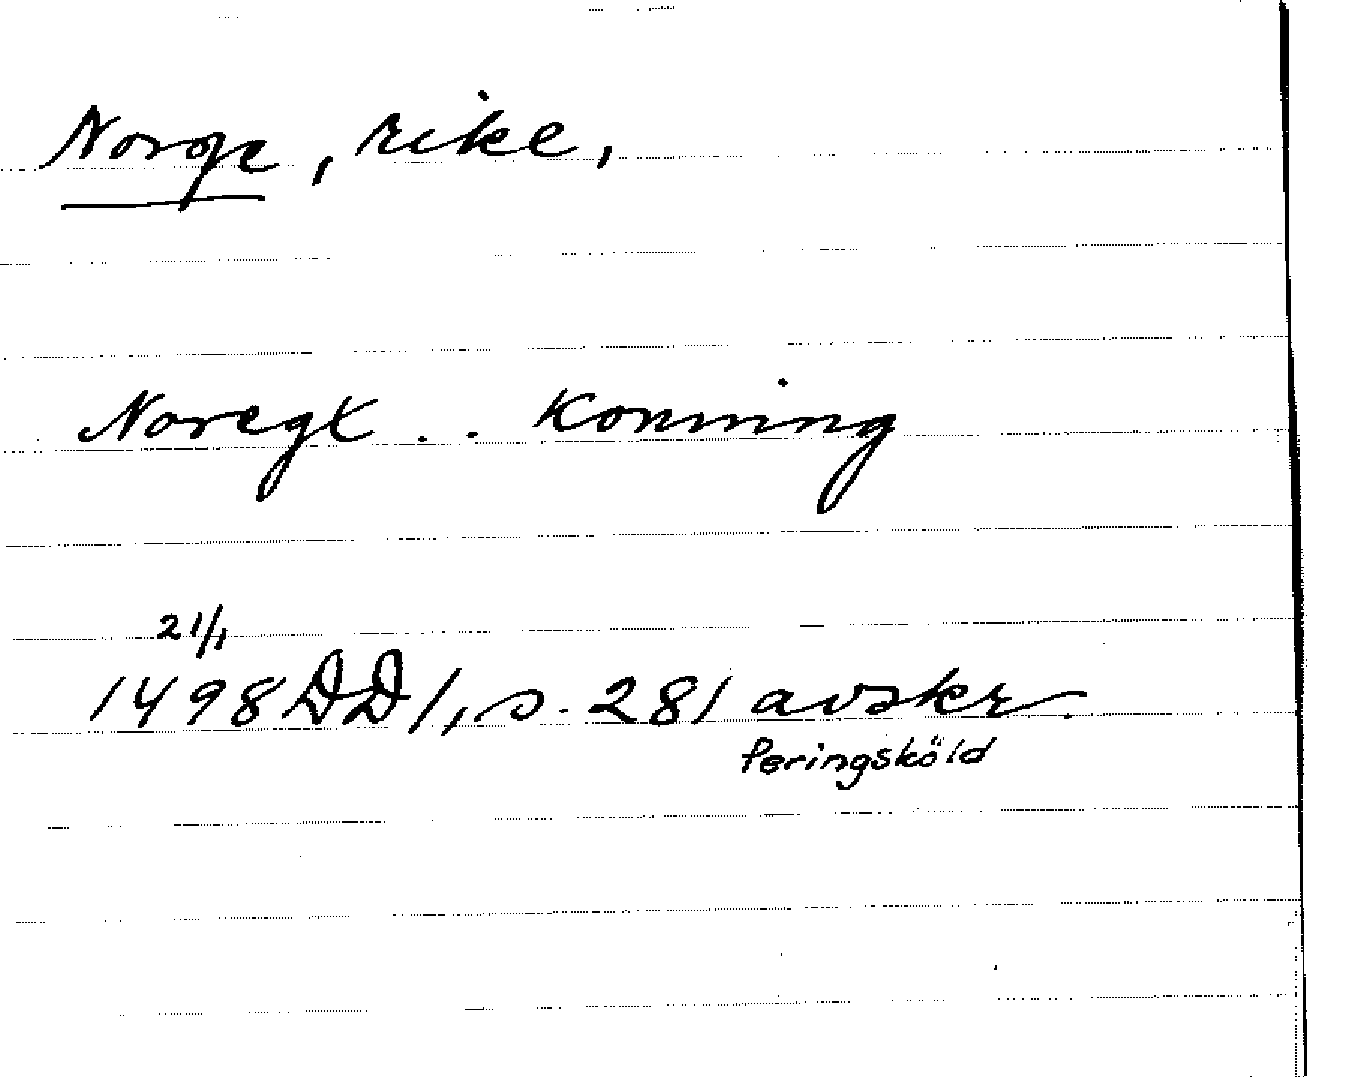 Norge, rike,
Noregx .. Konning
21/1
1498 DD1, s. 281 avskr.
Peringsköld